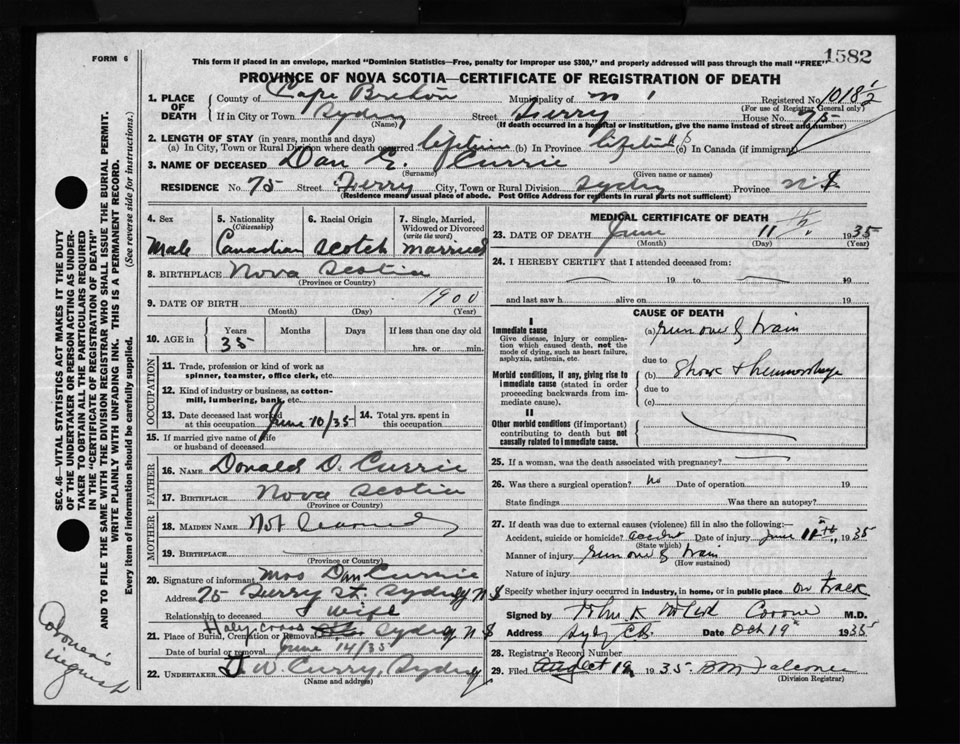 1582
FORM 6
This form if placed in an envelope, marked "Dominion Statistics—Free, penalty for improper use $300," and properly addressed will pass through the mail "FREE"
PROVINCE OF NOVA SCOTIA—CERTIFICATE OF REGISTRATION OF DEATH
1. PLACE OF DEATH
County of Cape Breton Municipality of Registered No. 1018½
(For use of Registrar General only)
If in City or Town Sydney Street Ferry House No. 75
(Name) (If death occurred in a hospital or institution, give the name instead of street and number)
2. LENGTH OF STAY (in years, months and days)
(a) In City, Town or Rural Division where death occurred lifetime (b) In Province lifetime (c) In Canada (if immigrant)
3. NAME OF DECEASED Dan E. Currie
(Surname) (Given name or names)
RESIDENCE No. 75 Street Ferry City, Town or Rural Division Sydney Province N S
(Residence means usual place of abode. Post Office Address for residents in rural parts not sufficient)
4. Sex
Male
5. Nationality
(Citizenship)
Canadian
6. Racial Origin
Scotch
7. Single, Married, Widowed or Divorced
(write the word)
married
8. BIRTHPLACE Nova Scotia
(Province or Country)
9. DATE OF BIRTH 1900
(Month) (Day) (Year)
10. AGE in
Years Months Days If less than one day old
35 hrs. or min.
OCCUPATION
11. Trade, profession or kind of work as spinner, teamster, office clerk, etc.
12. Kind of industry or business, as cotton-mill, lumbering, bank, etc.
13. Date deceased last worked at this occupation June 10/35
14. Total yrs. spent in this occupation
15. If married give name of wife or husband of deceased
FATHER
16. NAME Donald D. Currie
17. BIRTHPLACE Nova Scotia
(Province or Country)
MOTHER
18. MAIDEN NAME Not learned
19. BIRTHPLACE
(Province or Country)
20. Signature of informant Mrs Dan Currie
Address 75 Ferry St. Sydney N S
Relationship to deceased wife
21. Place of Burial, Cremation or Removal Holy Cross Sydney N S
Date of burial or removal June 14/35
22. UNDERTAKER J W. Curry, Sydney
(Name and address)
MEDICAL CERTIFICATE OF DEATH
23. DATE OF DEATH June 11 1935
(Month) (Day) (Year)
24. I HEREBY CERTIFY that I attended deceased from:
19 to 19
and last saw h alive on 19
CAUSE OF DEATH
I
Immediate cause
Give disease, injury or complication which caused death, not the mode of dying, such as heart failure, asphyxia, asthenia, etc.
(a) run over by train
due to
Morbid conditions, if any, giving rise to immediate cause (stated in order proceeding backwards from immediate cause).
(b) Shock & hemorrhage
due to
(c)
II
Other morbid conditions (if important) contributing to death but not causally related to immediate cause.
25. If a woman, was the death associated with pregnancy?
26. Was there a surgical operation? No Date of operation 19
State findings Was there an autopsy?
27. If death was due to external causes (violence) fill in also the following:—
Accident, suicide or homicide? accident Date of injury June 11th, 1935
(State which)
Manner of injury run over by train
(How sustained)
Nature of injury
Specify whether injury occurred in industry, in home, or in public place on track
Signed by John K McLeod Coroner M.D.
Address Sydney C.B. Date Oct 19 1935
28. Registrar's Record Number
29. Filed Oct 19 1935 D M Falconer
(Division Registrar)
SEC. 46—VITAL STATISTICS ACT MAKES IT THE DUTY OF THE UNDERTAKER OR PERSON ACTING AS UNDERTAKER TO OBTAIN ALL THE PARTICULARS REQUIRED IN THE "CERTIFICATE OF REGISTRATION OF DEATH" AND TO FILE THE SAME WITH THE DIVISION REGISTRAR WHO SHALL ISSUE THE BURIAL PERMIT.
WRITE PLAINLY WITH UNFADING INK. THIS IS A PERMANENT RECORD.
Every item of information should be carefully supplied. (See reverse side for instructions.)
Coroner's inquest